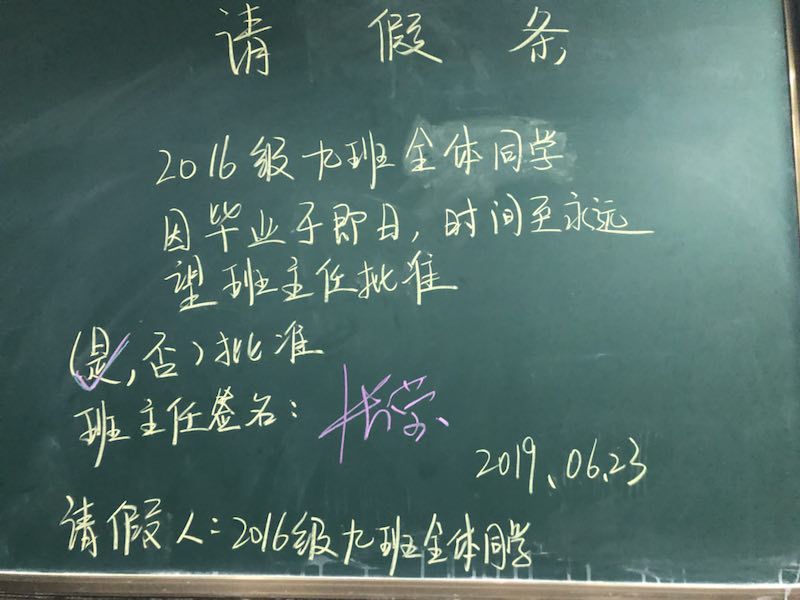 请假条
2016级九班全体同学
因毕业于即日,时间至永远
望班主任批准
(是,否)批准
班主任签名:
2019、06.23
请假人:2016级九班全体同学